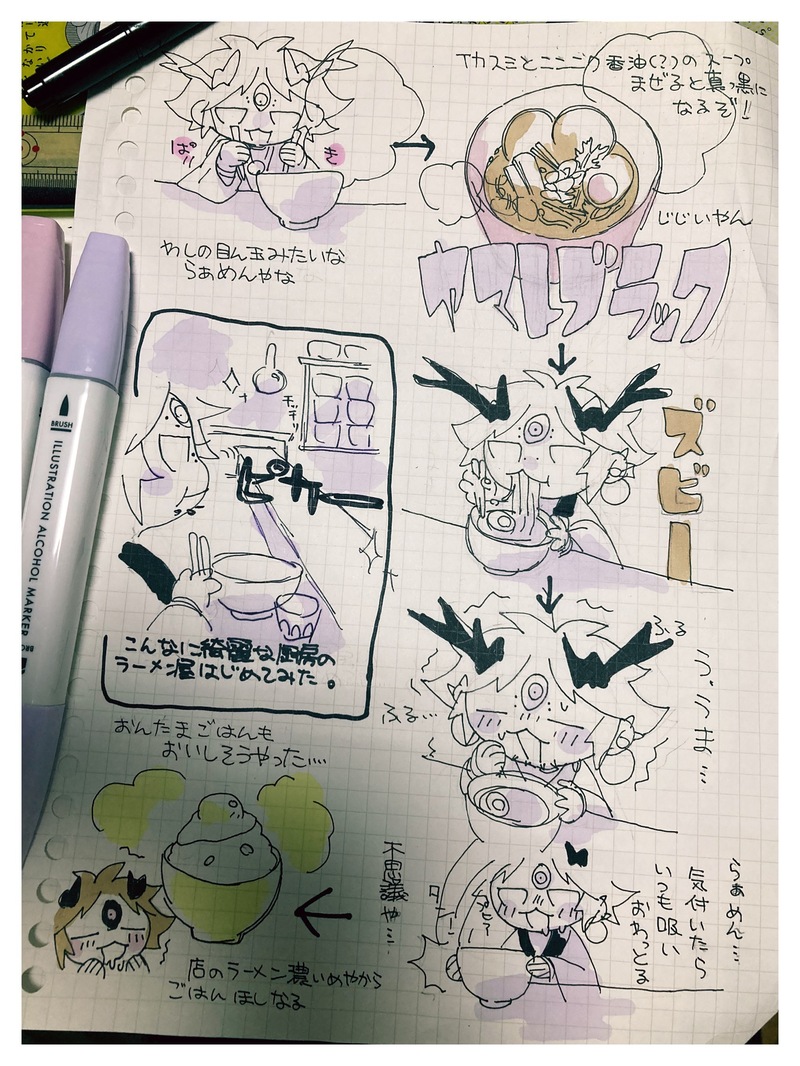 ぱり
き
イカスミとニンニク香油(?)のスープ
まぜると真っ黒に
なるぞ!!
じじいやん
わしの目ん玉みたいな
らぁめんやな
ブラック
ズビー
ピカー
こんなに綺麗な厨房の
ラーメン屋はじめてみた。
ふる
ふる…
う、うま…
おんたまごはんも
おいしそうやった….
らぁめん…
気付いたら
いつも吸い
おわっとる
不思議や…
店のラーメン濃いめやから
ごはんほしなる
BRUSH
ILLUSTRATION ALCOHOL MARKER